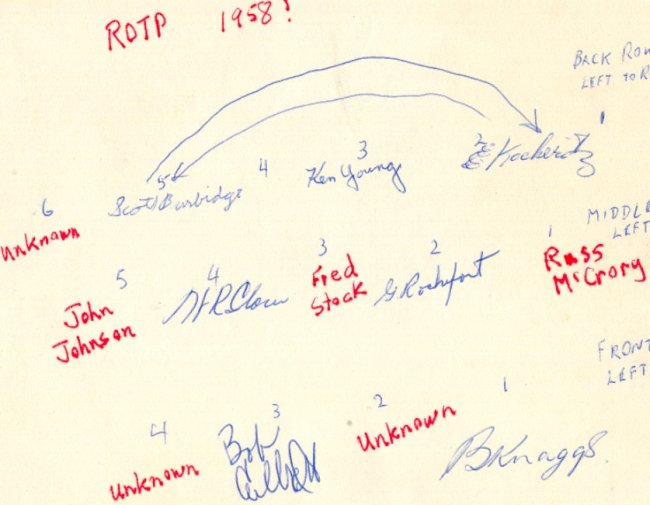 ROTP 1958?
BACK ROW
LEFT TO R
6 5 4 3 2 1
Unknown Scott Burbidge Ken Young
MIDDLE
LEFT
5 4 3 2 1
John Johnson Fred Stock G Rochefort Russ McCrory
FRONT
LEFT
4 3 2 1
Unknown Bob Unknown B Knaggs.